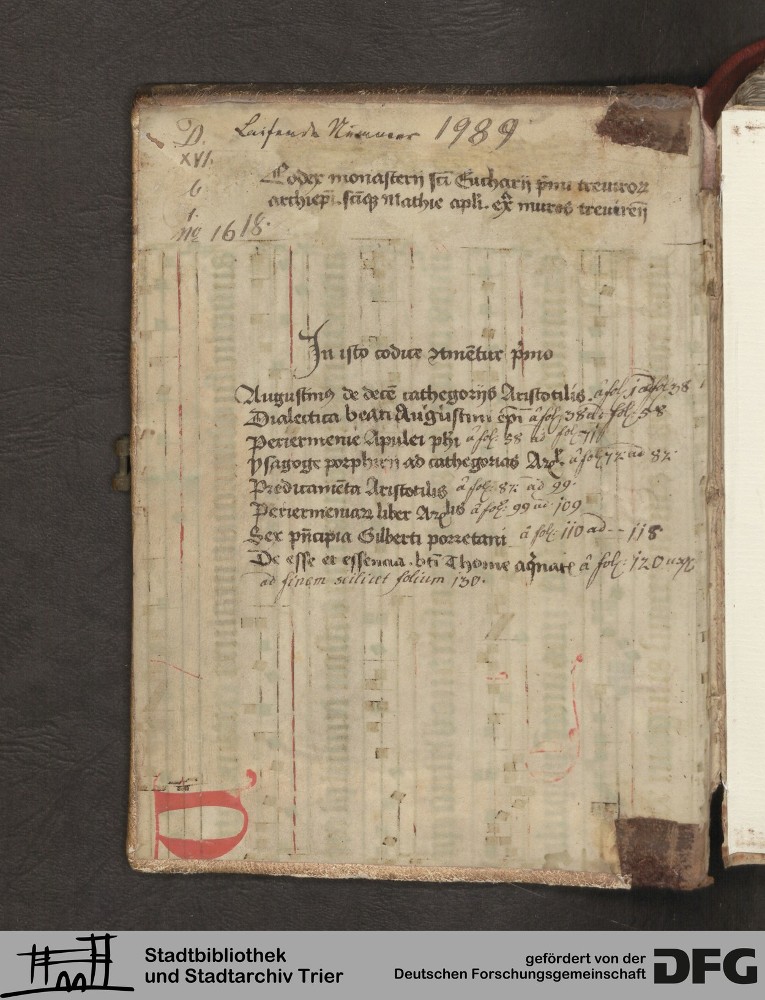 D.
XVI.
6
1.
No 1618.
Laufende Nummer 1989
Codex monasterij sci Eucharij pmi treuiror
archiepi. sciq Mathie apli. ex muros treuireñ
In isto codice 9tinentur pmo
Augustinus de decē cathegorijs Aristotilis a fol. 1 ad fol. 38
Dialectica beati Augustini epi â fol. 38 ad fol. 58
Periermenie Apulei phi â fol. 58 ad fol. 71
ysagoge porphirij ad cathegorias Ar. â fol. 72 ad 87.
Predicamēta Aristotilis â fol. 87. ad 99.
Periermeniar liber Ar.lis â fol. 99 ad 109
Sex pncipia Gilberti porretani â fol. 110 ad -- 118
De esse et essencia. bti Thome aqinat. â fol. 120 usq
ad finem scilicet folium 130.
Stadtbibliothek
und Stadtarchiv Trier
gefördert von der
Deutschen Forschungsgemeinschaft
DFG